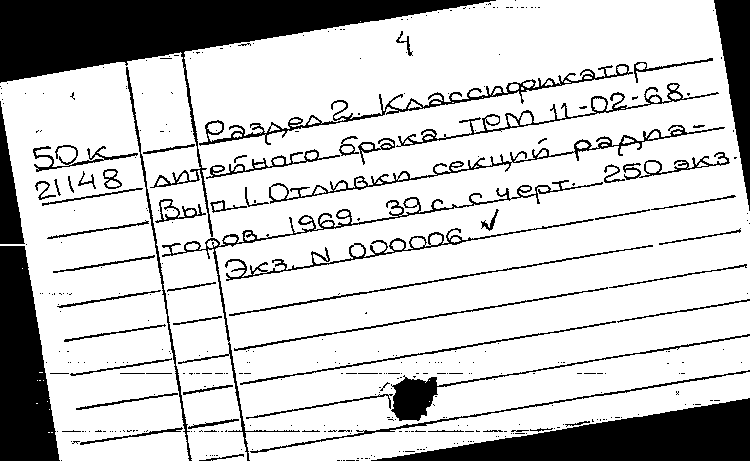 4
Раздел 2. Классификатор
50к литейного брака. ТРМ 11-02-68.
21148 Вып. 1. Отливки секций радиа-
торов. 1969. 39 с. с черт. 250 экз.
Экз. N 000006. ✓